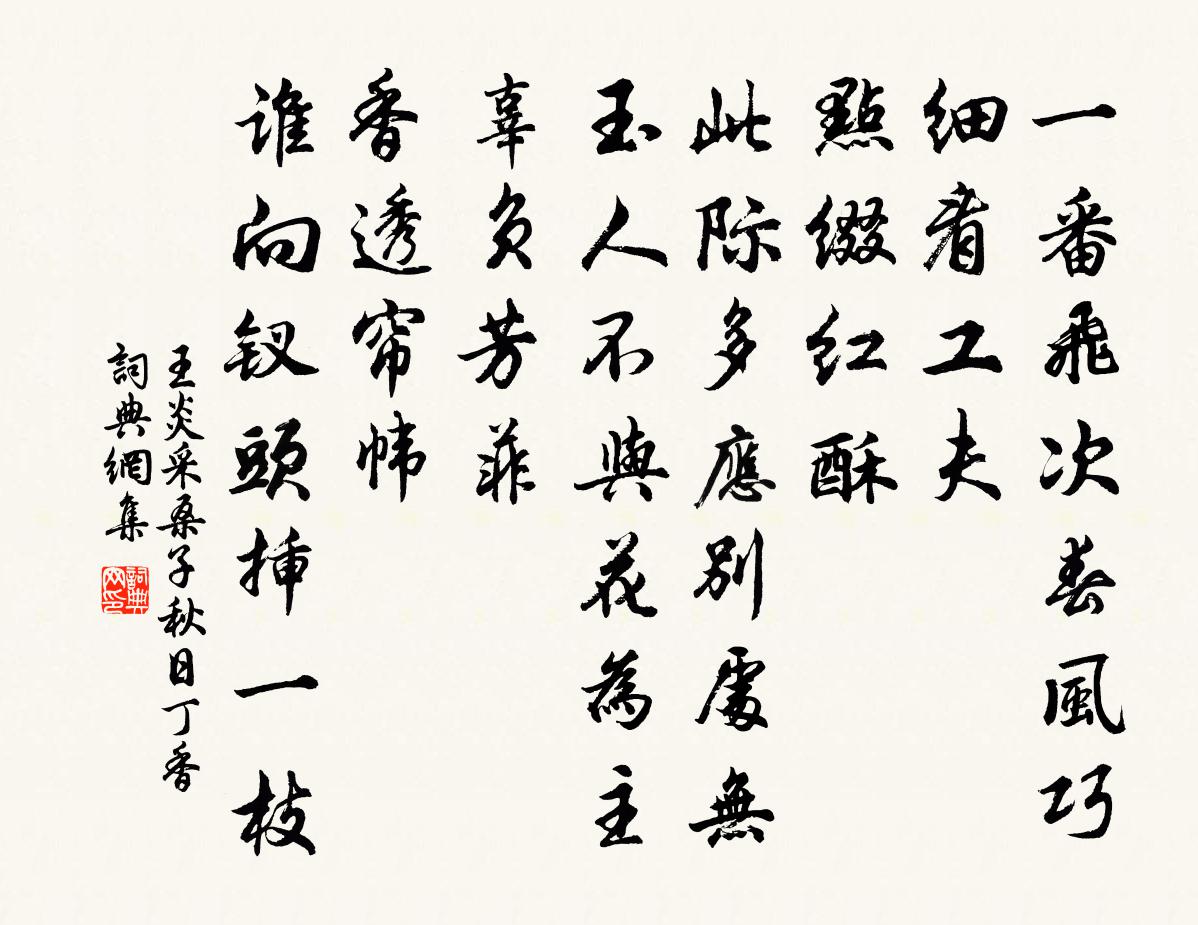 一番飛次春風巧
細看工夫
點綴红酥
此际多應别處無
玉人不與花為主
辜负芳菲
香透帘帏
誰向钗頭插一枝
王炎采桑子秋日丁香
詞典網集
詞典网印